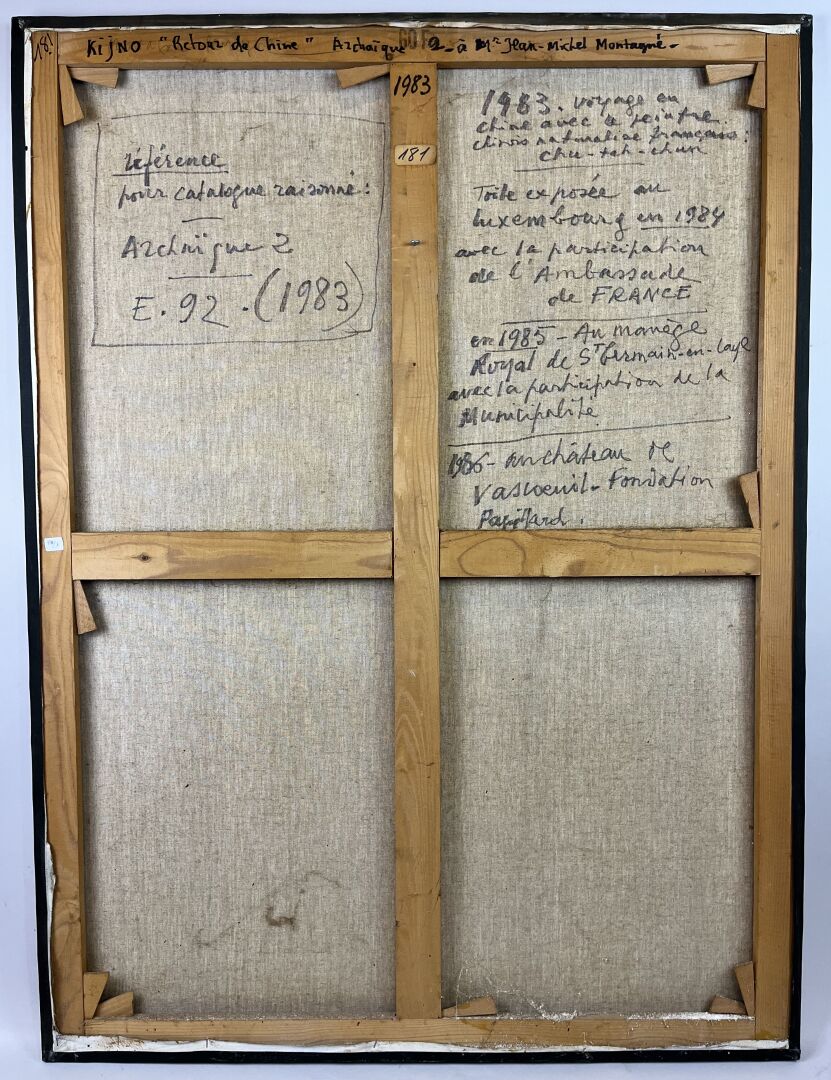 181
KIJNO "Retour de Chine" Archaïque 2 - à Mr Jean-Michel Montagné -
60 F
1983
181
référence
pour catalogue raisonné :
Archaïque 2
E. 92 . (1983)
1983. voyage en
chine avec le peintre
chinois naturalisé français :
chu-teh-chun
Toile exposée au
Luxembourg en 1984
avec la participation
de l'Ambassade
de FRANCE
en 1985 - Au manège
Royal de St Germain-en-Laye
avec la participation de la
Municipalité
1986 - au château de
Vascoeuil - Fondation